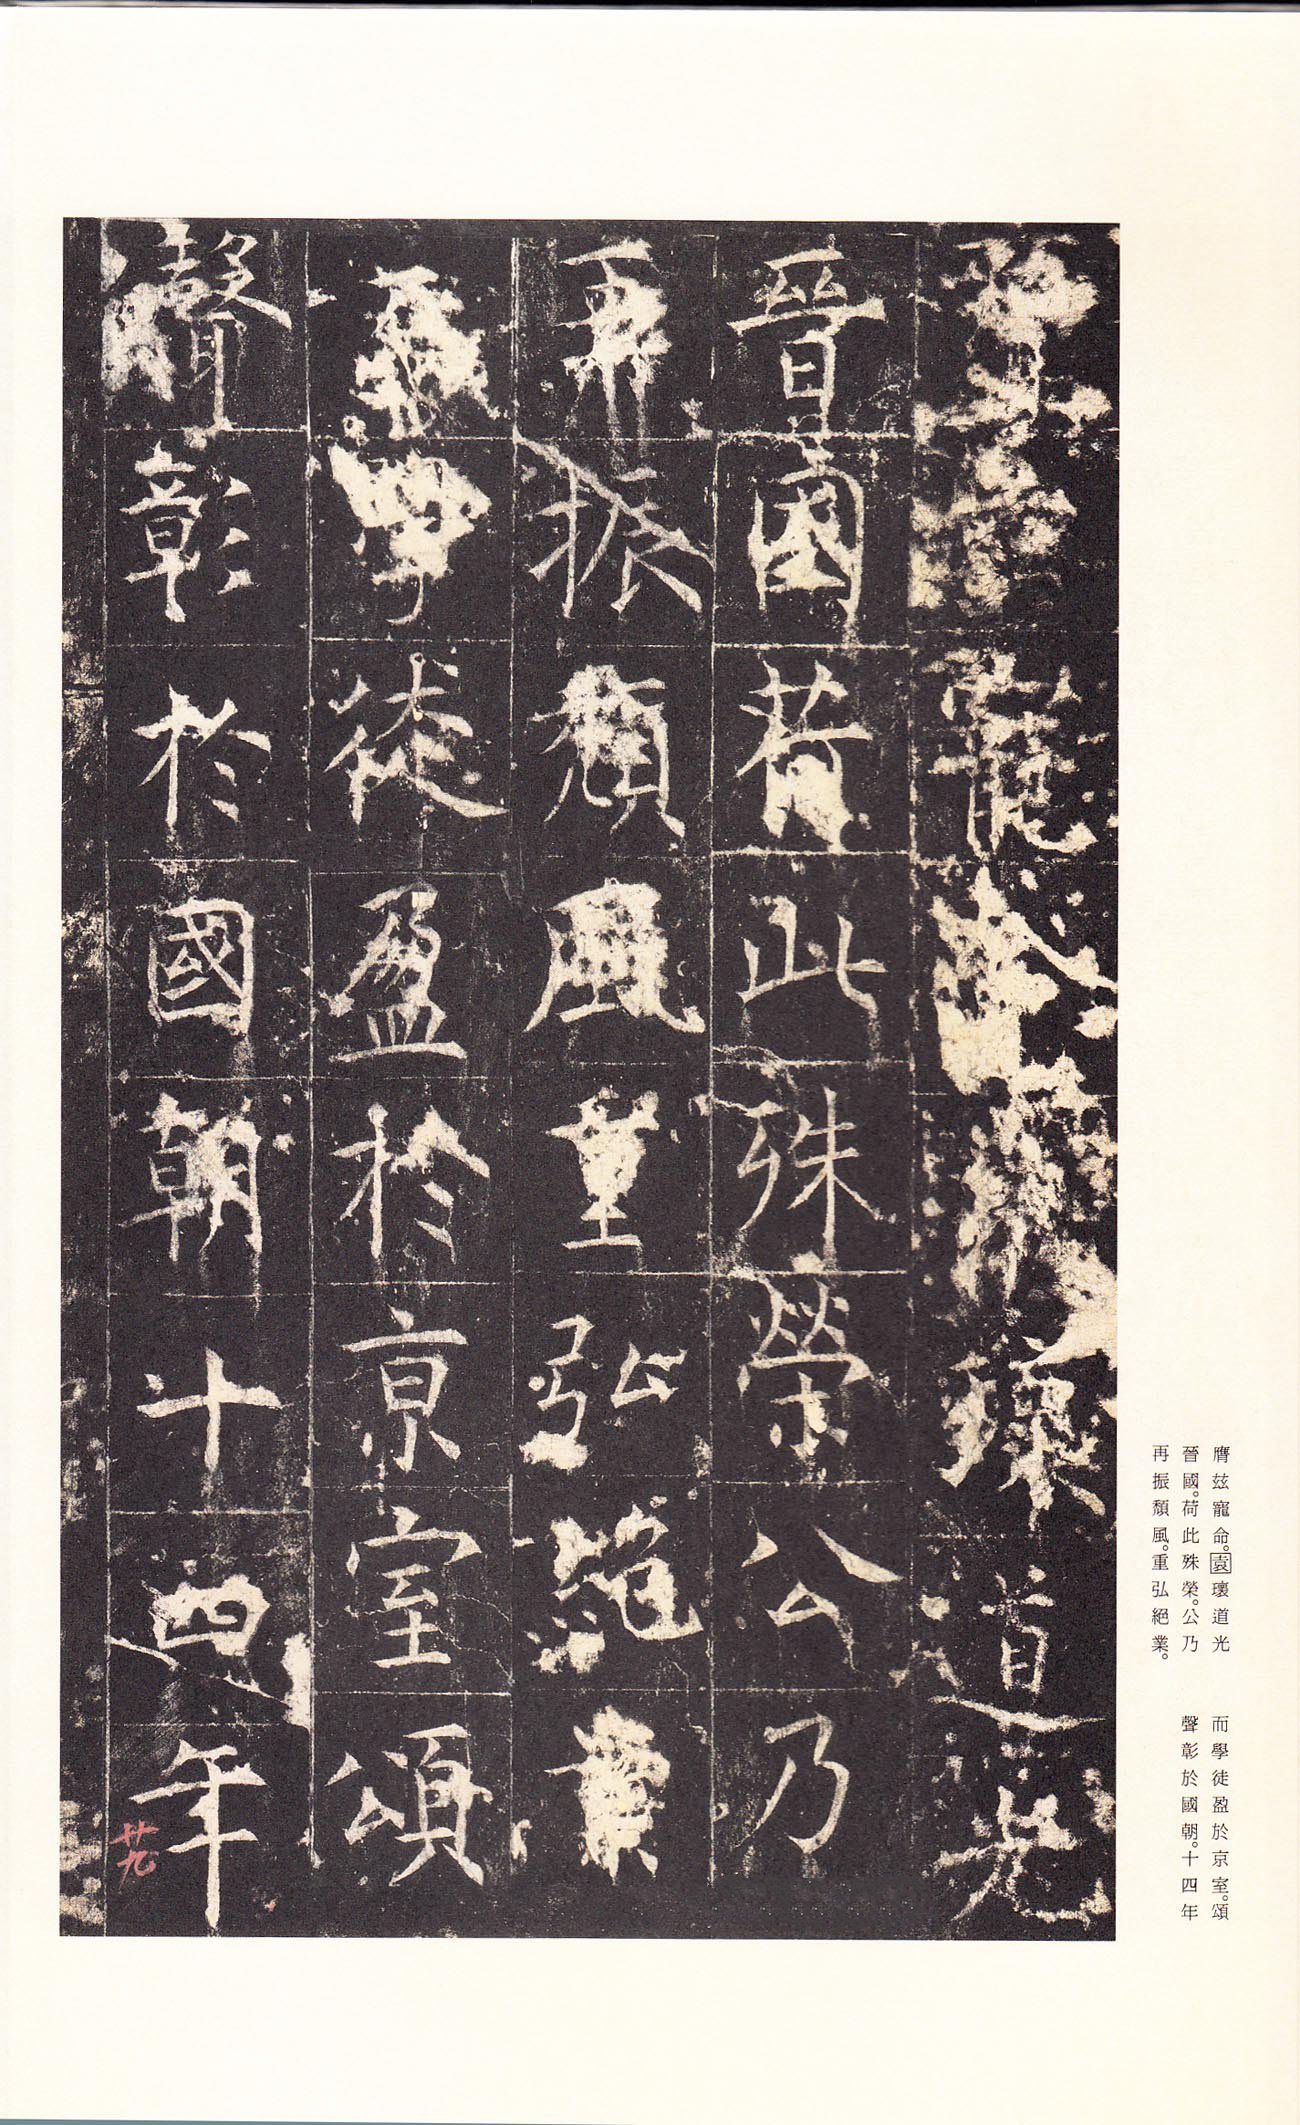 膺茲寵命袁瓌道光
晉國荷此殊榮公乃
再振頹風重弘絕業
而學徒盈於京室頌
聲彰於國朝十四年
廿九
膺茲寵命。袁瓌道光
晉國。荷此殊榮。公乃
再振頹風。重弘絕業。
而學徒盈於京室。頌
聲彰於國朝。十四年